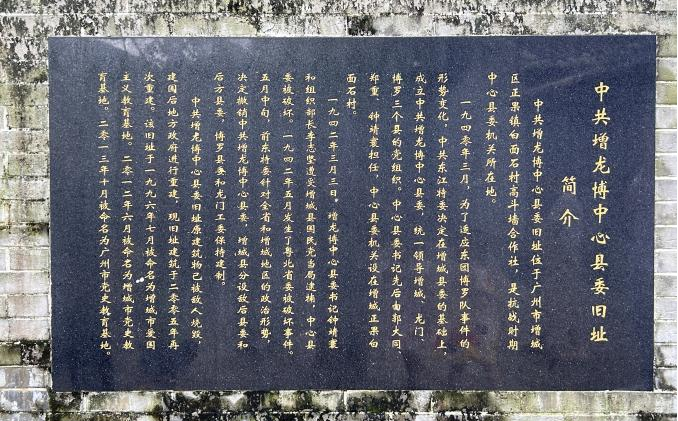 中共增龙博中心县委旧址
简介
中共增龙博中心县委旧址位于广州市增城
区正果镇白面石村高斗墙合作社，是抗战时期
中心县委机关所在地。
一九四零年三月，为了适应东团博罗队事件的
形势变化，中共东江特委决定在增城县委的基础上，
成立中共增龙博中心县委，统一领导增城、龙门、
博罗三个县的党组织。中心县委书记先后由郭大同、
郑重、钟靖寰担任，中心县委机关设在增城正果白
面石村。
一九四二年三月三日，增龙博中心县委书记钟靖寰
和组织部长李志坚遭受增城县国民党当局逮捕，中心县
委被破坏。一九四二年五月发生了粤北省委被破坏事件。
五月中旬，前东特委针对全省和增城地区的政治形势，
决定撤销中共增龙博中心县委，增城县分设敌后县委和
后方县委，博罗县委和龙门工委保持建制。
中共增龙博中心县委旧址原建筑物已被敌人烧毁，
建国后地方政府进行重建，现旧址建筑于二零零五年再
次重建。该旧址于一九九六年七月被命名为增城市爱国
主义教育基地。二零一二年六月被命名为增城市党史教
育基地。二零一三年十月被命名为广州市党史教育基地。